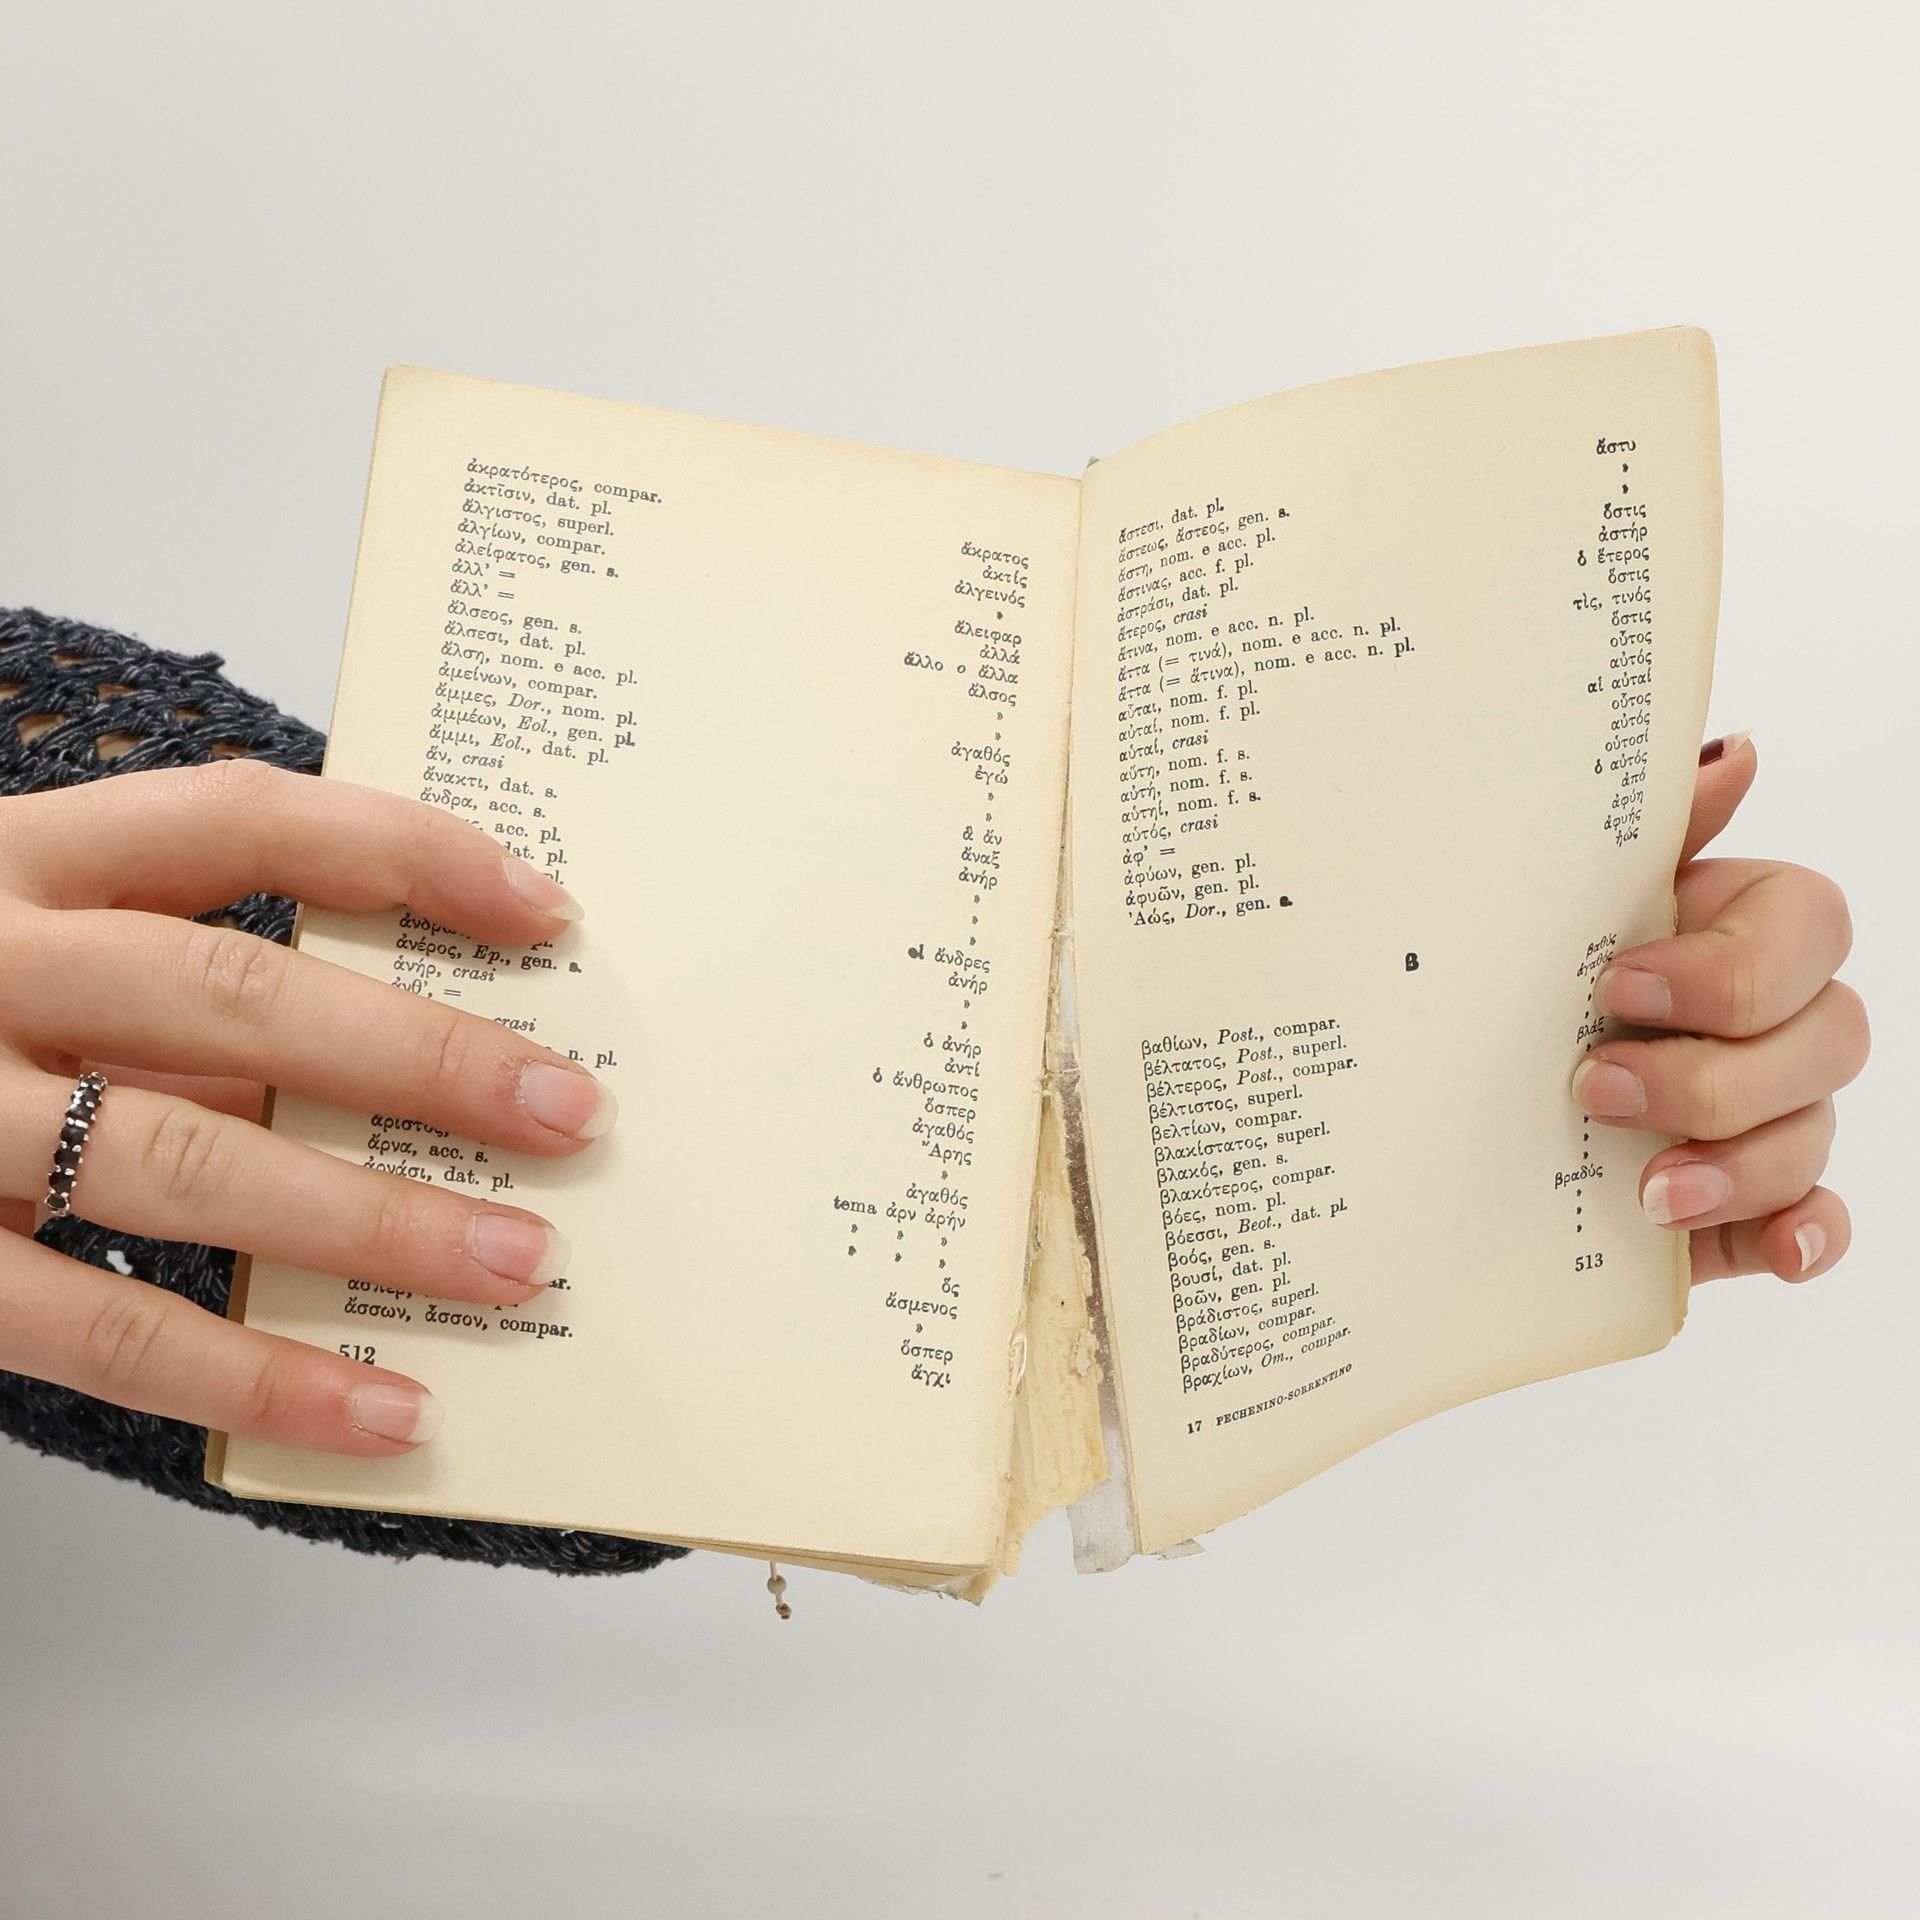 ἀκρατότερος, compar. ἄκρατος
ἀκτῖσιν, dat. pl. ἀκτίς
ἄλγιστος, superl. ἀλγεινός
ἀλγίων, compar. »
ἀλείφατος, gen. s. ἄλειφαρ
ἀλλ' = ἀλλά
ἄλλ' = ἄλλο o ἄλλα
ἄλσεος, gen. s. ἄλσος
ἄλσεσι, dat. pl. »
ἄλση, nom. e acc. pl. »
ἀμείνων, compar. ἀγαθός
ἄμμες, Dor., nom. pl. ἐγώ
ἀμμέων, Eol., gen. pl. »
ἄμμι, Eol., dat. pl. »
ἄν, crasi ἃ ἄν
ἄνακτι, dat. s. ἄναξ
ἄνδρα, acc. s. ἀνήρ
acc. pl. »
dat. pl. »
pl. »
οἱ ἄνδρες
pl. ἀνήρ
ἀνέρος, Ep., gen. s. »
»
ἁνήρ, crasi ὁ ἀνήρ
ἀνθ', = ἀντί
crasi ὁ ἄνθρωπος
n. pl. ὅσπερ
ἀγαθός
Ἄρης
»
ἄριστος, ἀγαθός
ἄρνα, acc. s. tema ἀρν ἀρήν
ἀρνάσι, dat. pl. » » »
» » »
ὅς
ἄσμενος
»
ὅσπερ
ἄσσων, ἆσσον, compar. ἄγχι
512
ἄστεσι, dat. pl. ἄστυ
ἄστεως, ἄστεος, gen. s. »
ἄστη, nom. e acc. pl. »
ἅστινας, acc. f. pl. ὅστις
ἀστράσι, dat. pl. ἀστήρ
ἅτερος, crasi ὁ ἕτερος
ἅτινα, nom. e acc. n. pl. ὅστις
ἄττα (= τινά), nom. e acc. n. pl. τὶς, τινός
ἅττα (= ἅτινα), nom. e acc. n. pl. ὅστις
αὗται, nom. f. pl. οὗτος
αὐταί, nom. f. pl. αὐτός
αὑταί, crasi αἱ αὐταί
αὕτη, nom. f. s. οὗτος
αὐτή, nom. f. s. αὐτός
αὑτηί, nom. f. s. οὑτοσί
αὑτός, crasi ὁ αὐτός
ἀφ' = ἀπό
ἀφύων, gen. pl. ἀφύη
ἀφυῶν, gen. pl. ἀφυής
Ἀώς, Dor., gen. s. ἠώς
B
βαθίων, Post., compar. βαθύς
βέλτατος, Post., superl. ἀγαθός
βέλτερος, Post., compar. »
βέλτιστος, superl. »
βελτίων, compar.
βλακίστατος, superl. βλάξ
βλακός, gen. s. »
βλακότερος, compar.
βόες, nom. pl.
βόεσσι, Beot., dat. pl.
βοός, gen. s. »
βουσί, dat. pl. »
βοῶν, gen. pl. »
βράδιστος, superl. βραδύς
βραδίων, compar. »
βραδύτερος, compar. »
βραχίων, Om., compar. »
17 PECHENINO-SORRENTINO 513